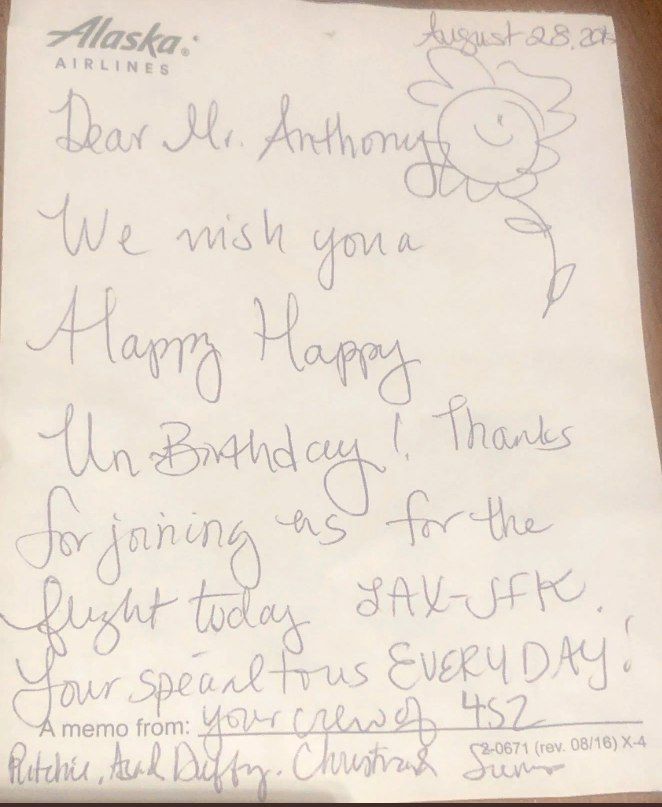 Alaska®
AIRLINES
August 28, 20
Dear Mr. Anthony
We wish you a
Happy Happy
Un-Birthday! Thanks
for joining us for the
flight today LAX-JFK.
Your special to us EVERYDAY!
A memo from: your crew of 452
2-0671 (rev. 08/16) X-4
Ritchie, Duffy. Christina &